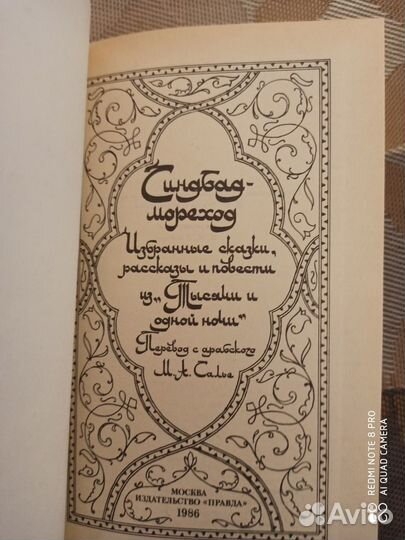 Синдбад-
мореход
Избранные сказки,
рассказы и повести
из „Тысячи и
одной ночи“
Перевод с арабского
М. А. Салье
МОСКВА
ИЗДАТЕЛЬСТВО «ПРАВДА»
1986
REDMI NOTE 8 PRO
AI QUAD CAMERA
Avito